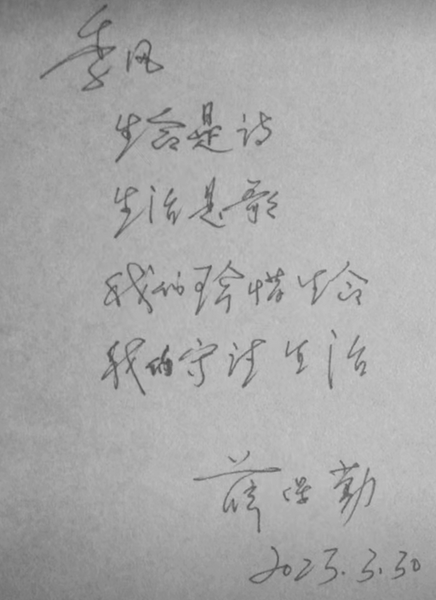 季风
生命是诗
生活是歌
我们珍惜生命
我们守 生活
薛保勤
2023.3.30